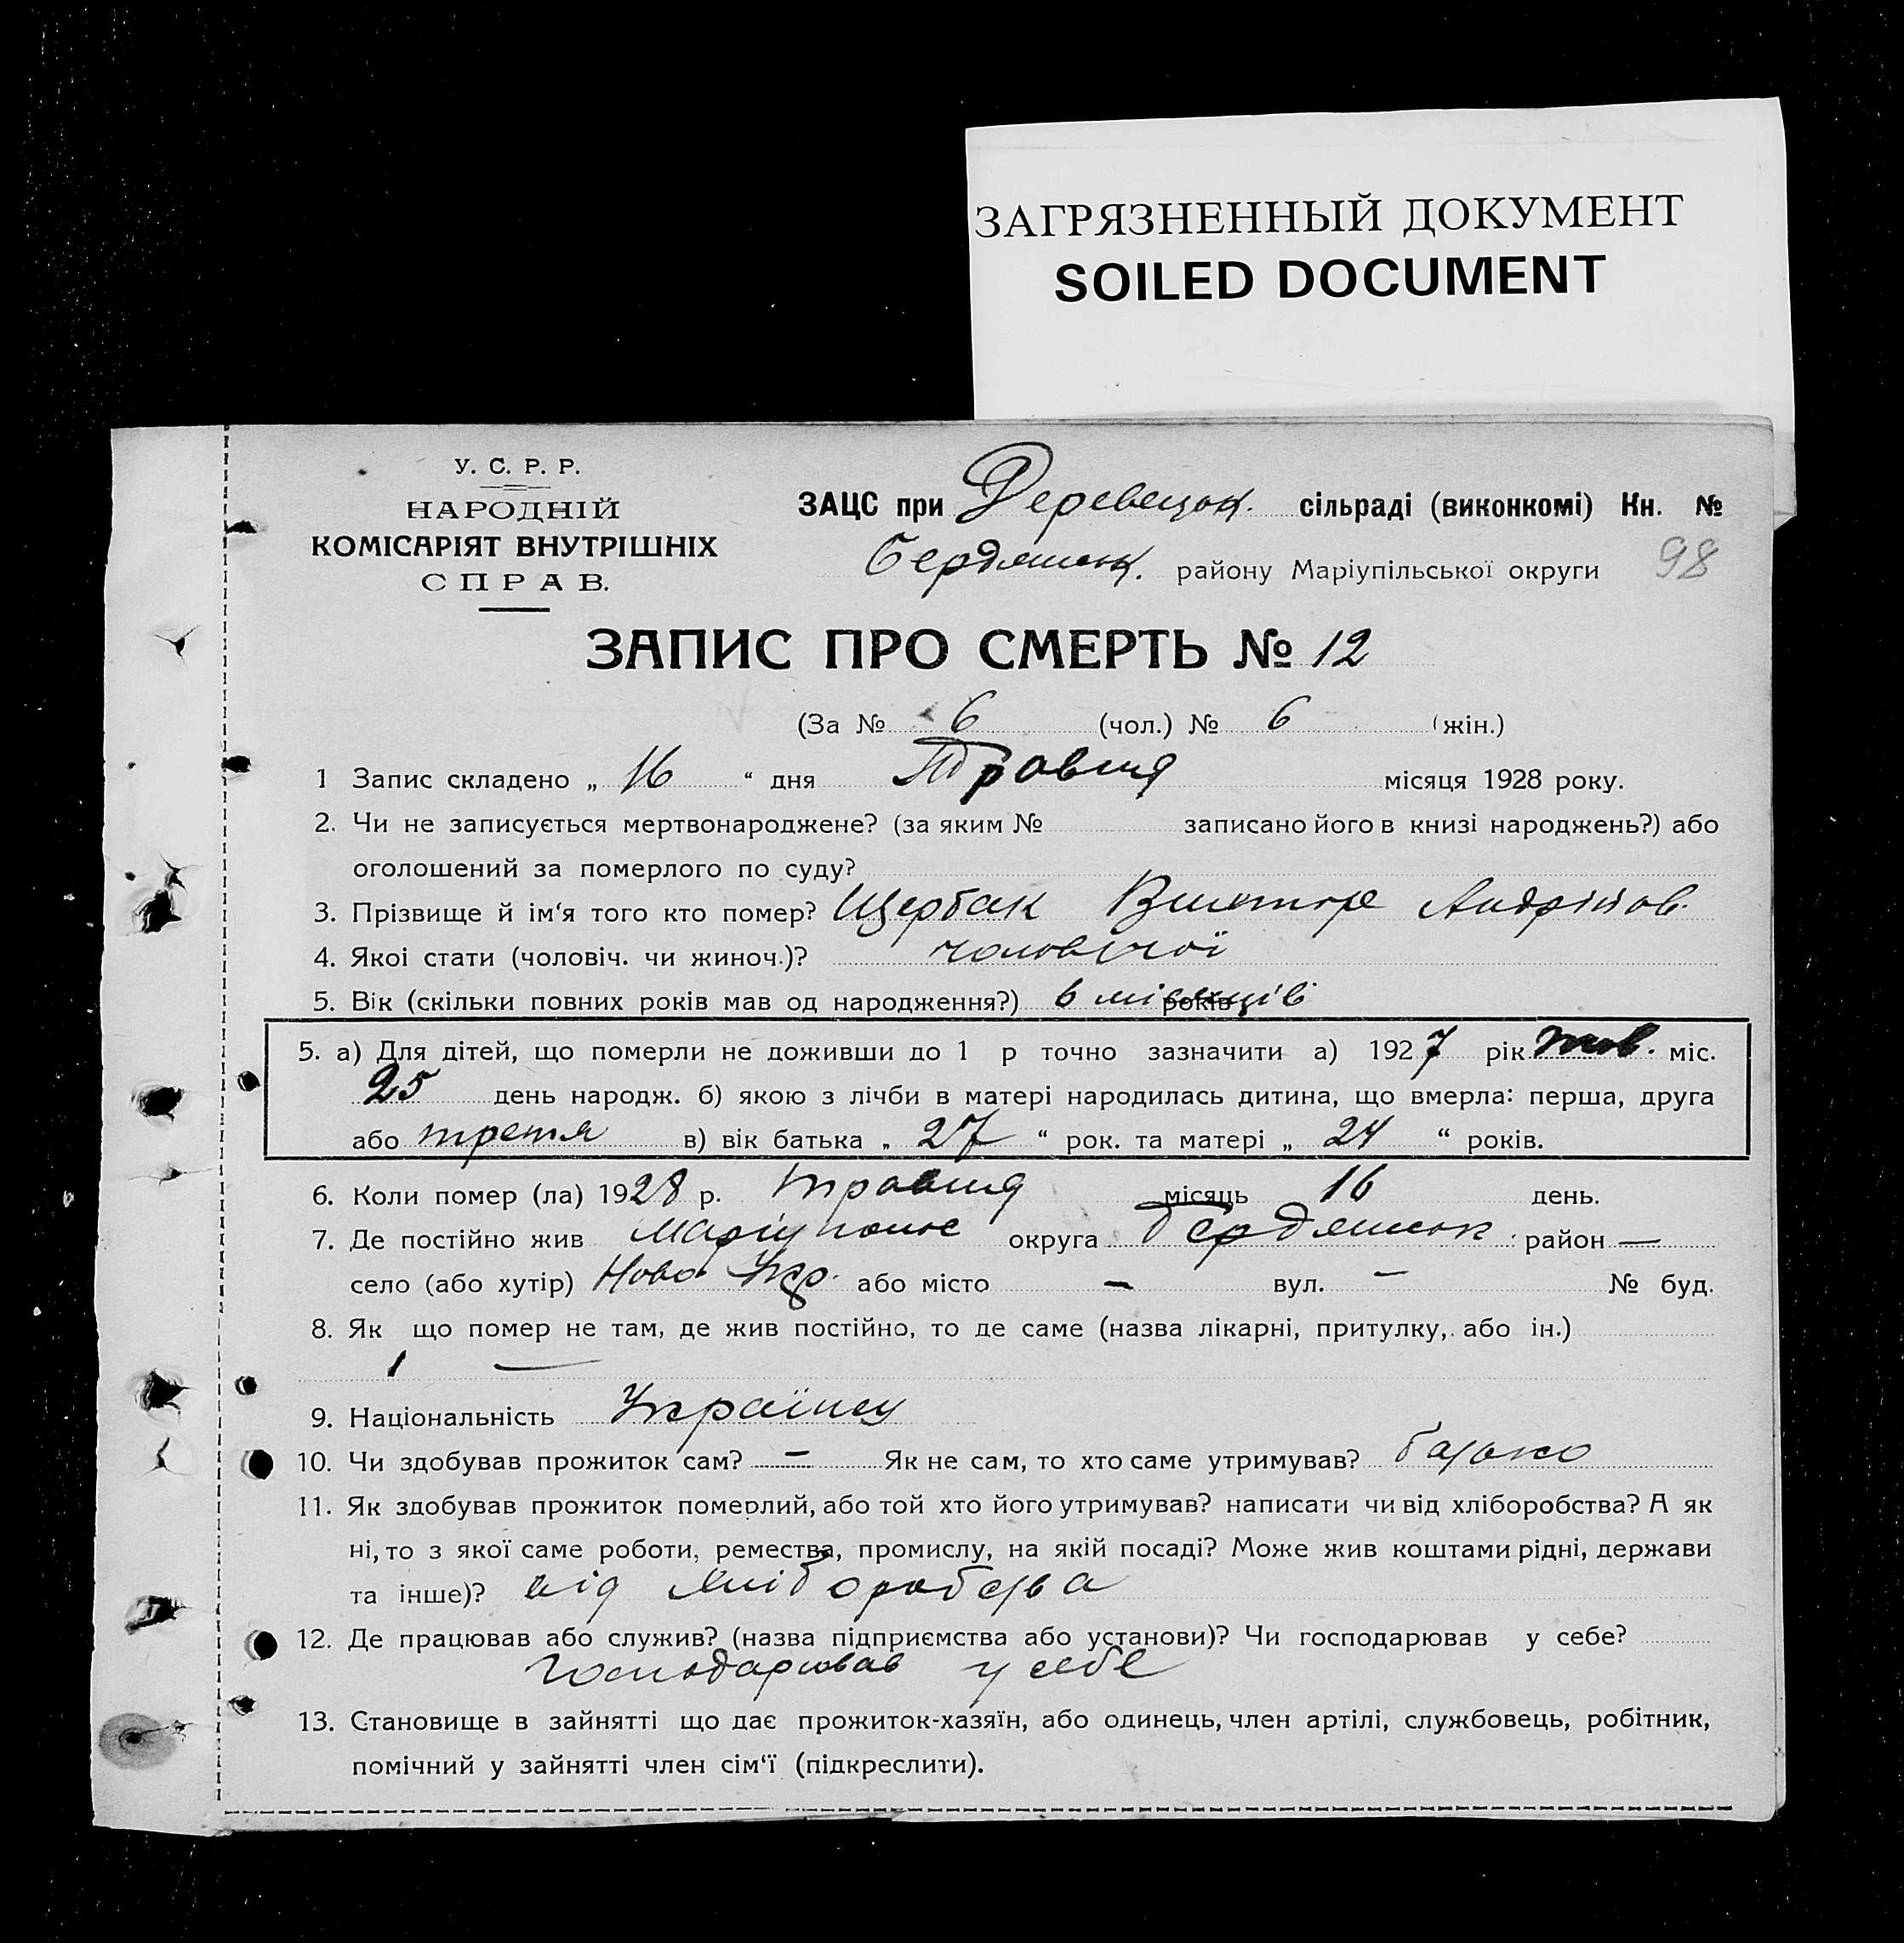 ЗАГРЯЗНЕННЫЙ ДОКУМЕНТ
SOILED DOCUMENT
У. С. Р. Р.
НАРОДНІЙ
КОМІСАРІЯТ ВНУТРІШНІХ
СПРАВ.
ЗАЦС при Деревецьк. сільраді (виконкомі) Кн. №
Бердянськ. району Маріупільської округи 98
ЗАПИС ПРО СМЕРТЬ № 12
(За № 6 (чол.) № 6 (жін.)
1 Запис складено „ 16 “ дня Травня місяця 1928 року.
2. Чи не записується мертвонароджене? (за яким № записано його в книзі народжень?) або
оголошений за померлого по суду?
3. Прізвище й ім‘я того кто помер? Щербак Виктор Андріїов.
4. Якоі стати (чоловіч. чи жиноч.)? чоловічої
5. Вік (скільки повних років мав од народження?) 6 місяців років
5. а) Для дітей, що померли не доживши до 1 р точно зазначити а) 1927 рік жов. міс.
25 день народж. б) якою з лічби в матері народилась дитина, що вмерла: перша, друга
або третя в) вік батька „ 27 “ рок. та матері „ 24 “ років.
6. Коли помер (ла) 1928 р. травня місяць 16 день.
7. Де постійно жив Маріупольс округа Бердянськ район —
село (або хутір) Ново Укр. або місто — вул. — № буд.
8. Як що помер не там, де жив постійно, то де саме (назва лікарні, притулку, або ін.)
—
9. Національність Українец
10. Чи здобував прожиток сам? — Як не сам, то хто саме утримував? батько
11. Як здобував прожиток померлий, або той хто його утримував? написати чи від хліборобства? А як
ні, то з якої саме роботи, ремества, промислу, на якій посаді? Може жив коштами рідні, держави
та інше)? від хліборобства
12. Де працював або служив? (назва підприємства або установи)? Чи господарював у себе?
Господарював у себе
13. Становище в зайнятті що дає прожиток-хазяїн, або одинець, член артілі, службовець, робітник,
помічний у зайнятті член сім‘ї (підкреслити).